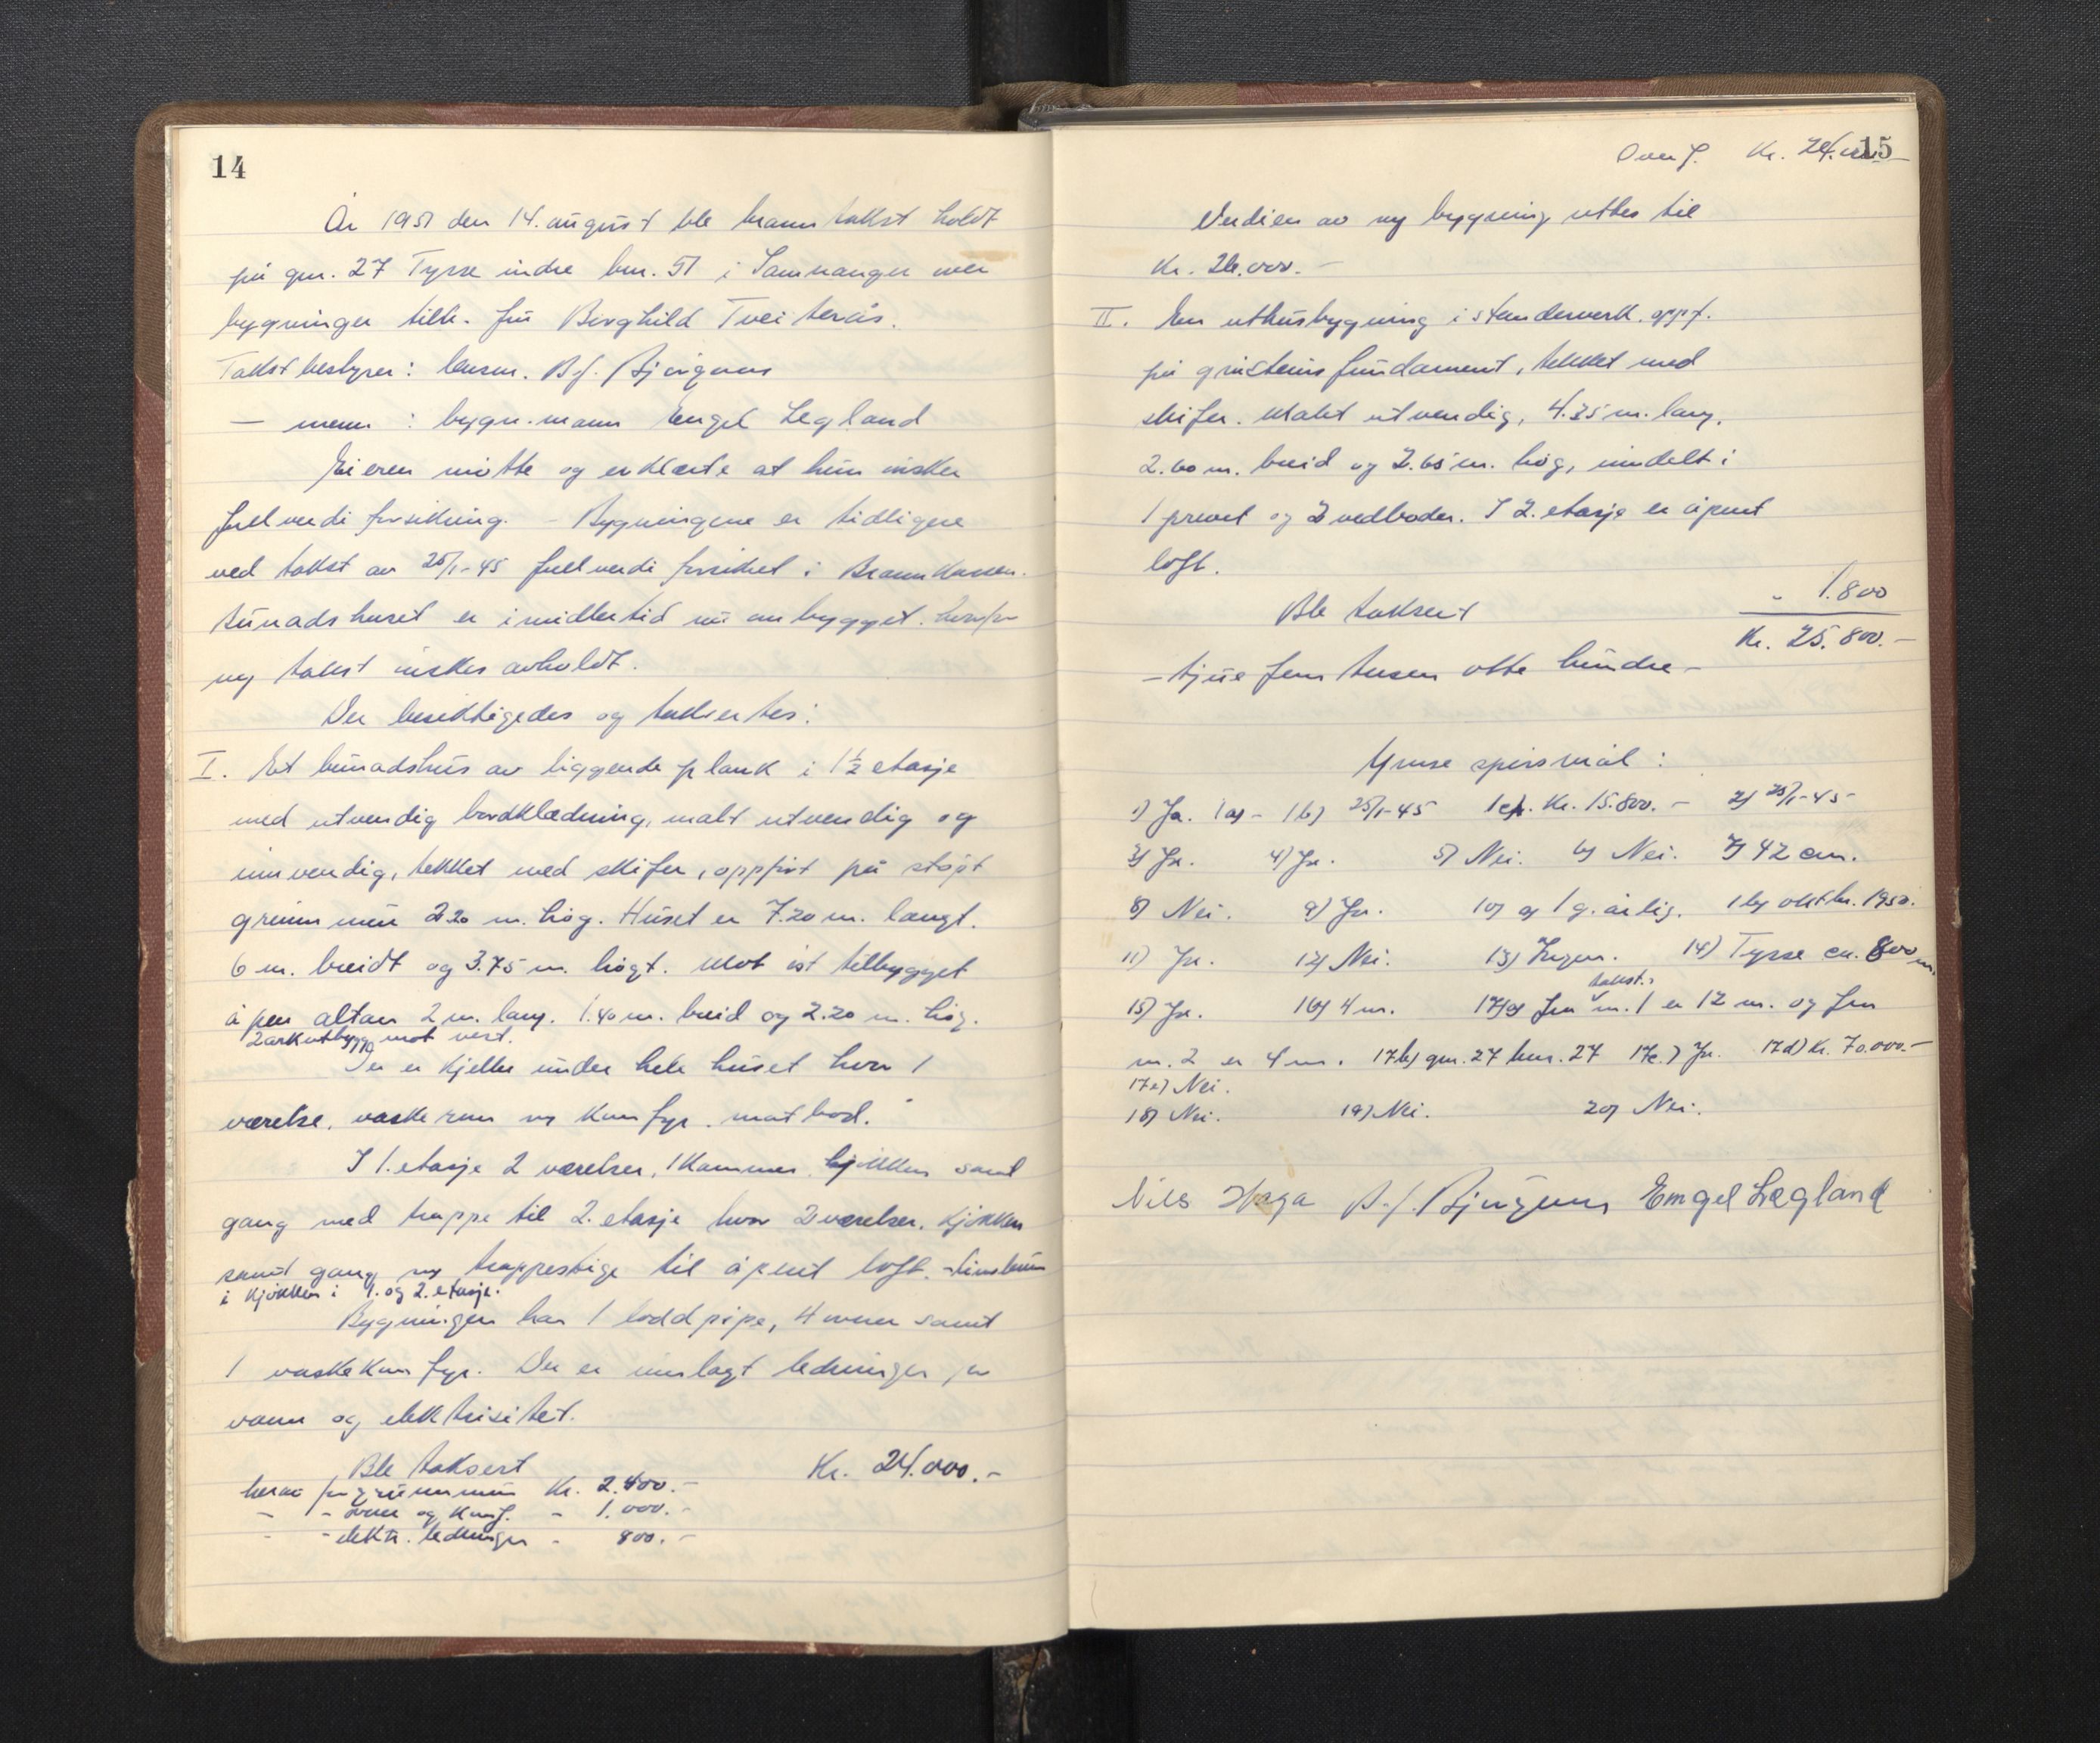 14
År 1951 den 14. august ble branntakst holdt
på gnr. 27 Tysse indre bnr. 51 i Samnanger over
bygninger tilh. frú Borghild Tveiterås.
Takstbestyrer: lensm. B.J. Bjørgum
— menn : bygn.mann Engel Legland
Eieren møtte og erklærte at hun ønsker
fullverdi forsikring. – Bygningene er tidligere
ved takst av 25/1-45 fullverdi forsikret i Brannkassen.
búnadshuset er imidlertid nú ombygget. hvorfor
ny takst ønskes avholdt.
Der besiktigedes og taksertes:
I. Et búnadshús av liggende plank i 1½ etasje
med utvendig bordklædning, malt utvendig og
innvendig, tekket med skifer, oppført på støpt
grunnmur 2.20 m. høg. Húset er 7.20 m. langt.
6 m. breidt og 3.75 m. høgt. Mot øst tilbygget
åpen altan 2 m. lang. 1.40 m. breid og 2.20 m. høg.
2 arkutbygg mot vest.
Der er kjeller únder hele húset hvor 1
værelse, vaskerom og komfyr. matbod.
I 1. etasje 2 værelser, 1 kammer, kjøkken samt
gang med trappe til 2. etasje hvor 2 værelser, kjøkken
samt gang og trappestige til åpent loft.
i kjøkken i 1. og 2. etasje.
Bygningen har 1 loddpipe, 4 ovner samt
1 vaskekomfyr. Der er innlagt ledninger for
vann og elektrisitet.
Ble taksert Kr. 24.000.-
herav for grunnmúr Kr. 2.400.-
– - ovner og komf. - 1.000.-
- - elektr. ledninger - 800.-
15
Overf. Kr. 24.000.-
Verdien av ny bygning settes til
Kr. 26.000.-
II. En uthúsbygning i stenderverk. oppf.
på gråsteins fúndament, tekket med
skifer. Malt utvendig, 4.35 m. lang,
2.60 m. breid og 2.65 m. høg, inndelt i
1 prevet og 2 vedboder. I 2. etasje er åpent
loft.
Ble taksert - 1.800
Kr. 25.800.-
– tjue fem tusen åtte húndre –
Ymse spørsmål :
1) Ja. 1a) - 1b) 25/1-45 1c). Kr. 15.800.- 2) 25/1-45
3) Ja. 4) Ja. 5) Nei. 6) Nei. 7) 42 cm.
8) Nei. 9) Ja. 10) a) 1 g. årlig. 1b) oktbr. 1950.
11) Ja. 12) Nei. 13) Ingen. 14) Tysse ca. 800 m.
takst.
15) Ja. 16) 4 m. 17)a) fra nr. 1 er 12 m. og fra
nr. 2 er 4 m. 17b) gnr. 27 bnr. 27 17c.) Ja. 17d) Kr. 70.000.-
17e) Nei.
18) Nei. 19) Nei. 20) Nei.
Nils Haga B.J. Bjørgum Engel Lægland